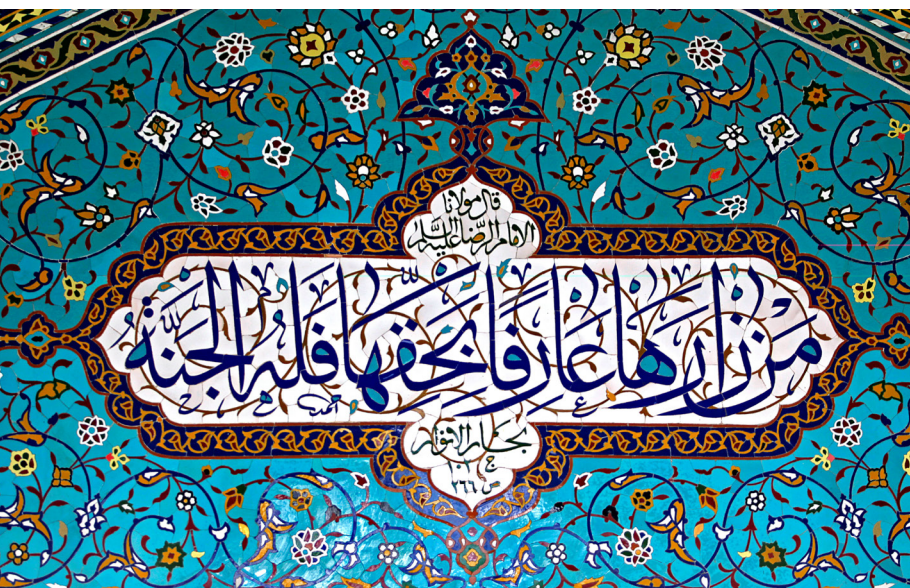 قال مولانا
الامام الرضا علیه السلام
مَنْ زَارَهَا عَارِفًا بِحَقِّهَا فَلَهُ الْجَنَّةُ
بحار الانوار
ص ٢٦٦